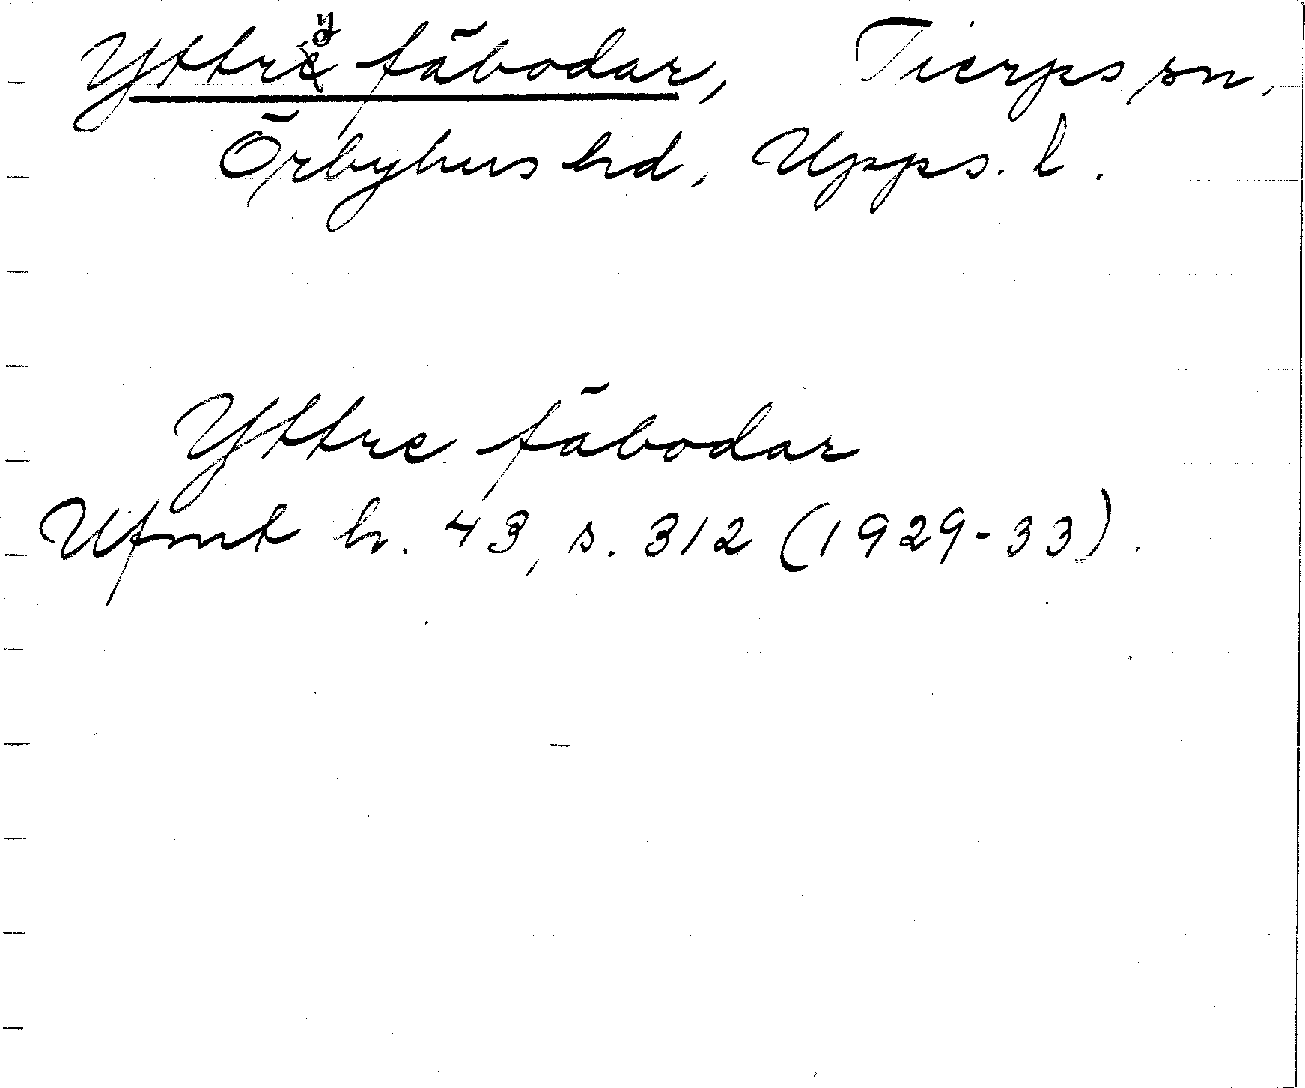 Yttre fäbodar, Tierps sn,
Örbyhus hd, Upps. l.
Yttre fäbodar
Ufmt h. 43, s. 312 (1929-33).